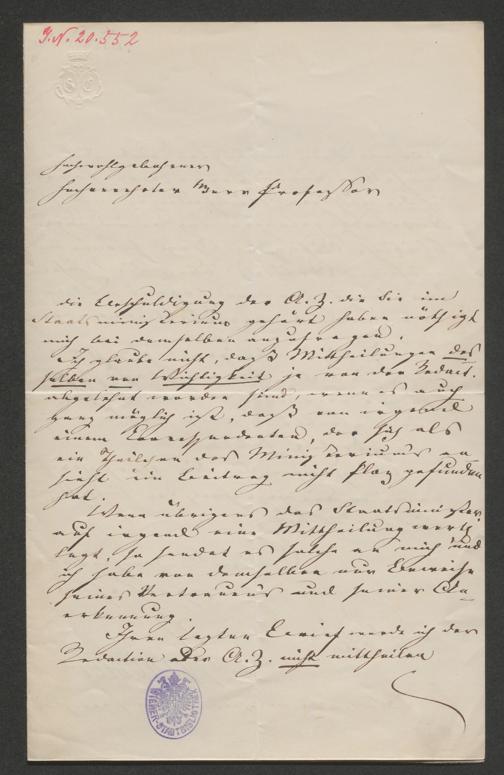 J.N. 20.552
Hochwohlgeborener
Hochverehrter Herr Professor
die Beschuldigung der A. Z. die Sie im
Staatsministerium gehört haben nöthigt
mich bei demselben anzufragen
Ich glaube nicht, daß Mittheilungen des
selben von Wichtigkeit je von der Redact.
abgelehnt worden sind, wenn es auch
ganz möglich ist, daß von irgend
einem Korrespondenten, der sich als
ein Theilchen des Ministeriums an
sieht ein Beitrag nicht Platz gefunden
hat.
Wenn übrigens das Staatsminister.
auf irgend eine Mittheilung werth
legt, so sendet es solche an mich und
ich habe von demselben nur Beweise
seines Vertrauens und seiner An
erkennung.
Ihren letzten Brief werde ich der
Redaction der A. Z. nicht mittheilen
WIENER STADTBIBLIOTHEK